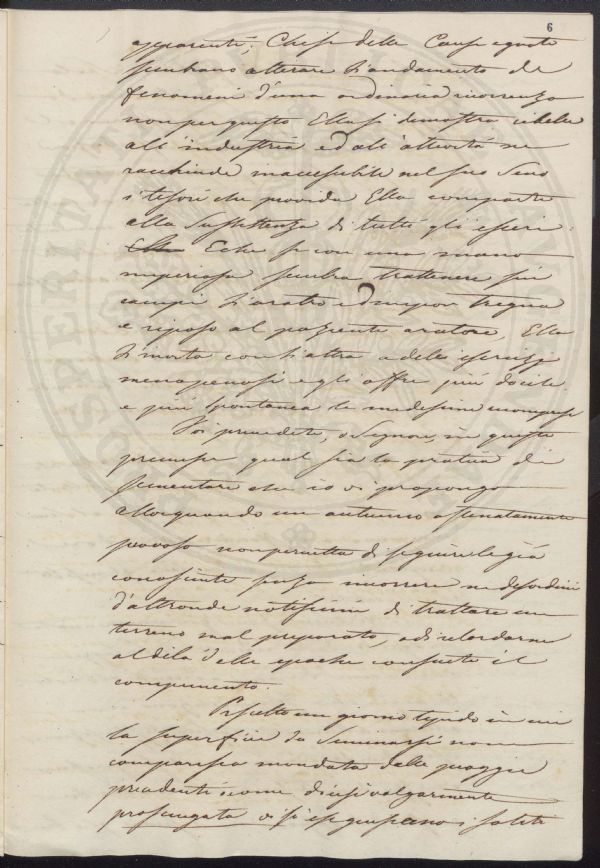 6
apparenti; Che se delle Cause egeste
sembrano alterare l'andamento de
fenomeni d'una ordinaria ricorrenza
non per questo Ella si dimostra ribelle
all'industria ed all'attività ne
racchiude inaccessibile nel suo Seno
i tesori che provida Ella comparte
alla Sussistenza di tutti gli esseri:
E che se con una mano
imperiosa sembra trattenere sui
campi l'aratro ed impor tregua
e riposo al paziente aratore, Ella
l'invita con l'altra a delle
meno penosi e gli offre più docile
e più spontanea le medesime ricompense
Voi prevedete, o Signori, in queste
premesse qual sia la pratica di
sementare che io vi propongo
allorquando un autunno ostinatamente
piovoso non permetta di seguire le già
conosciute senza incorrere ne disordini
d'altronde notissimi di trattare un
terreno mal preparato, o di ritardarne
al di là delle epoche consuete il
compimento.
Prescelto un giorno tepido in cui
la superficie da Seminarsi non
comparessa inondata dalle piogge
precedenti o come dicesi volgarmente
prosciugata vi si eseguiscano i soliti